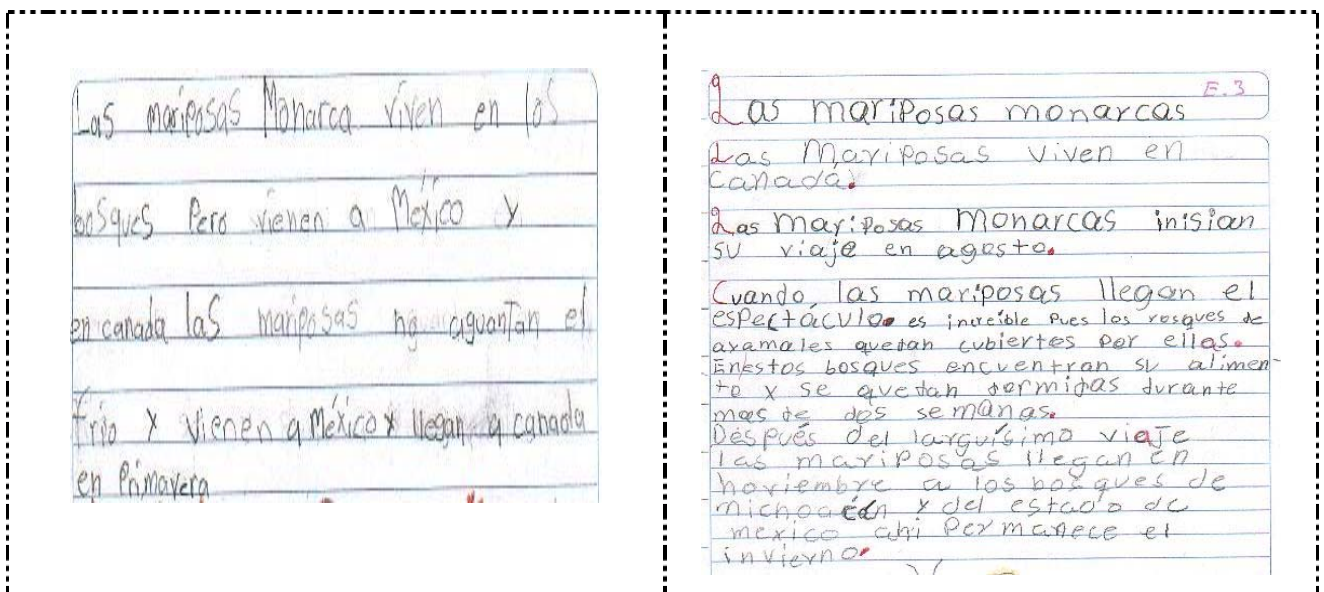 Las mariposas Monarca viven en los
bosques Pero vienen a México y
en canada las mariposas no aguantan el
frio y vienen a México y llegan a canada
en Primavera
E.3
Las mariposas monarcas
Las Mariposas viven en
canadá.
Las mariposas monarcas inisian
su viaje en agosto.
Cuando, las mariposas llegan el
espectáculo. es increíble pues los vosques de
ayamales quedan cubiertes por ellas.
Enestos bosques encuentran su alimen-
to y se quedan dormidas durante
mas de dos semanas.
Después del larguísimo viaje
las mariposas llegan en
noviembre a los bosques de
michoacán y del estado de
mexico ahi permanece el
invierno.